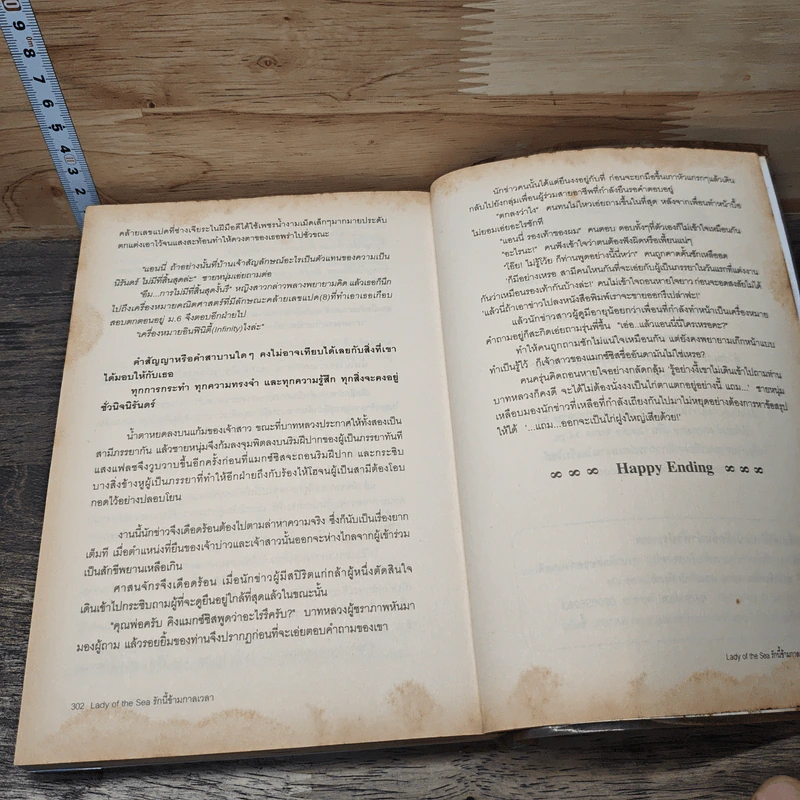 คล้ายเลขแปดที่ช่างเจียระไนฝีมือดีได้ใช้เพชรน้ำงามเม็ดเล็กๆมากมายประดับ
ตกแต่งเอาไว้จนแสงสะท้อนทำให้ดวงตาของเธอพร่าไปชั่วขณะ
"แอนนี่ ถ้าอย่างนั้นที่บ้านเจ้าสัญลักษณ์อะไรเป็นตัวแทนของความเป็น
นิรันดร์ ไม่มีที่สิ้นสุดล่ะ" ชายหนุ่มเอ่ยถามต่อ
"อืม...การไม่มีที่สิ้นสุดงั้นรึ" หญิงสาวกล่าวพลางพยายามคิด แล้วเธอก็นึก
ไปถึงเครื่องหมายคณิตศาสตร์ที่มีลักษณะคล้ายเลขแปด(8)ที่ทำเอาเธอเกือบ
สอบตกตอนอยู่ ม.6 จึงตอบอีกฝ่ายไป
"เครื่องหมายอินฟินิตี้(Infinity)ไงล่ะ"
คำสัญญาหรือคำสาบานใดๆ คงไม่อาจเทียบได้เลยกับสิ่งที่เขา
ได้มอบให้กับเธอ
ทุกการกระทำ ทุกความทรงจำ และทุกความรู้สึก ทุกสิ่งจะคงอยู่
ชั่วนิจนิรันดร์
น้ำตาหยดลงบนแก้มของเจ้าสาว ขณะที่บาทหลวงประกาศให้ทั้งสองเป็น
สามีภรรยากัน แล้วชายหนุ่มจึงก้มลงจุมพิตลงบนริมฝีปากของผู้เป็นภรรยาทันที
แสงแฟลชจึงวูบวาบขึ้นอีกครั้งก่อนที่แมกซ์ซิสจะถอนริมฝีปาก และกระซิบ
บางสิ่งข้างหูผู้เป็นภรรยาที่ทำให้อีกฝ่ายถึงกับร้องไห้โฮจนผู้เป็นสามีต้องโอบ
กอดไว้อย่างปลอบโยน
งานนี้นักข่าวจึงเดือดร้อนต้องไปตามล่าหาความจริง ซึ่งก็นับเป็นเรื่องยาก
เต็มที เมื่อตำแหน่งที่ยืนของเจ้าบ่าวและเจ้าสาวนั้นออกจะห่างไกลจากผู้เข้าร่วม
เป็นสักขีพยานเหลือเกิน
ศาสนจักรจึงเดือดร้อน เมื่อนักข่าวผู้มีสปิริตแก่กล้าผู้หนึ่งตัดสินใจ
เดินเข้าไปกระซิบถามผู้ที่จะดูยืนอยู่ใกล้ที่สุดแล้วในขณะนั้น
"คุณพ่อครับ คิงแมกซ์ซิสพูดว่าอะไรรึครับ?" บาทหลวงผู้ชราภาพหันมา
มองผู้ถาม แล้วรอยยิ้มของท่านจึงปรากฏก่อนที่จะเอ่ยตอบคำถามของเขา
302 Lady of the Sea รักนี้ข้ามกาลเวลา
นักข่าวคนนั้นได้แต่ยืนงงอยู่กับที่ ก่อนจะยกมือขึ้นเกาหัวแกรกๆแล้วเดิน
กลับไปยังกลุ่มเพื่อนผู้ร่วมสายอาชีพที่กำลังยืนรอคำตอบอยู่
"ตกลงว่าไง" คนทนไม่ไหวเอ่ยถามขึ้นในที่สุด หลังจากเพื่อนทำหน้าอึ้ง
ไม่ยอมเอ่ยอะไรซักที
"แอนนี่ รองเท้าของผม" คนตอบ ตอบทั้งๆที่ตัวเองก็ไม่เข้าใจเหมือนกัน
"อะไรนะ!" คนฟังเข้าใจว่าตนต้องฟังผิดหรือเพี้ยนแน่ๆ
"โอ๊ย! ไม่รู้โว้ย ก็ท่านพูดอย่างนี้นี่หว่า" คนถูกคาดคั้นชักเหลืออด
'ก็มีอย่างเหรอ สามีคนไหนกันที่จะเอ่ยกับผู้เป็นภรรยาในวันแรกที่แต่งงาน
กันว่าเหมือนรองเท้ากันบ้างล่ะ!' คนไม่เข้าใจถอนหายใจยาว ก่อนจะอดสงสัยไม่ได้
'แล้วนี่ถ้าเอาข่าวไปลงหนังสือพิมพ์เราจะขายออกรึเปล่าฟะ!'
แล้วนักข่าวสาวผู้ดูมีอายุน้อยกว่าเพื่อนที่กำลังทำหน้าเป็นเครื่องหมาย
คำถามอยู่ก็สะกิดเอ่ยถามรุ่นพี่ขึ้น "เอ่อ...แล้วแอนนี่นี่ใครเหรอคะ?"
ทำให้คนถูกถามชักไม่แน่ใจเหมือนกัน แต่ยังคงพยายามเก๊กหน้าแบบ
ทำเป็นรู้ไว้ ก็เจ้าสาวของแมกซ์ซิสชื่ออันดามันไม่ใช่เหรอ?
คนครุ่นคิดถอนหายใจอย่างกลัดกลุ้ม 'รู้อย่างงี้เขาไม่เดินเข้าไปถามท่าน
บาทหลวงก็คงดี จะได้ไม่ต้องนั่งงงเป็นไก่ตาแตกอยู่อย่างนี้ แถม...' ชายหนุ่ม
เหลือบมองนักข่าวที่เหลือที่กำลังเถียงกันไปมาไม่หยุดอย่างต้องการหาข้อสรุป
ให้ได้ '...แถม...ออกจะเป็นไก่ฝูงใหญ่เสียด้วย!'
∞ ∞ ∞ Happy Ending ∞ ∞ ∞
Lady of the Sea รักนี้ข้ามกาลเวลา